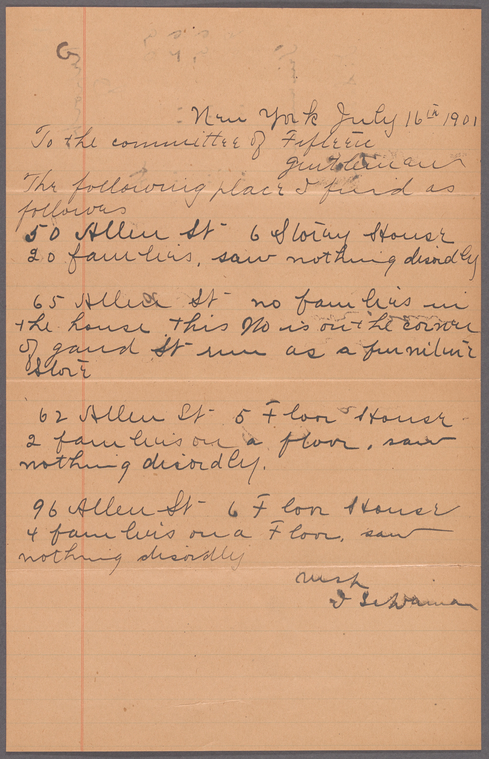 New York July 16th 1901
To the committee of Fifteen
Gentleman
The following place I find as
follows
50 Allen St 6 Storay House
20 families, saw nothing disordly
65 Allen St no families in
the house this No is on the corner
of gand St run as a furniture
Store
62 Allen St 5 Floor House
2 families on a floor, saw
nothing disordly.
96 Allen St 6 Floor House
4 families on a Floor, saw
nothing disordly